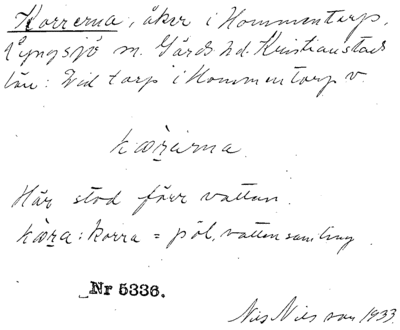 Korrerna, åker i Hommentorp,
Lyngsjö sn. Gärds hd. Kristianstads
län: Vid torp i Hommentorp v.
kæṟarna
Här stod förr vatten.
kæṟa: korra = pöl, vattensamling.
Nr 5336.
Nils Nilsson 1933.